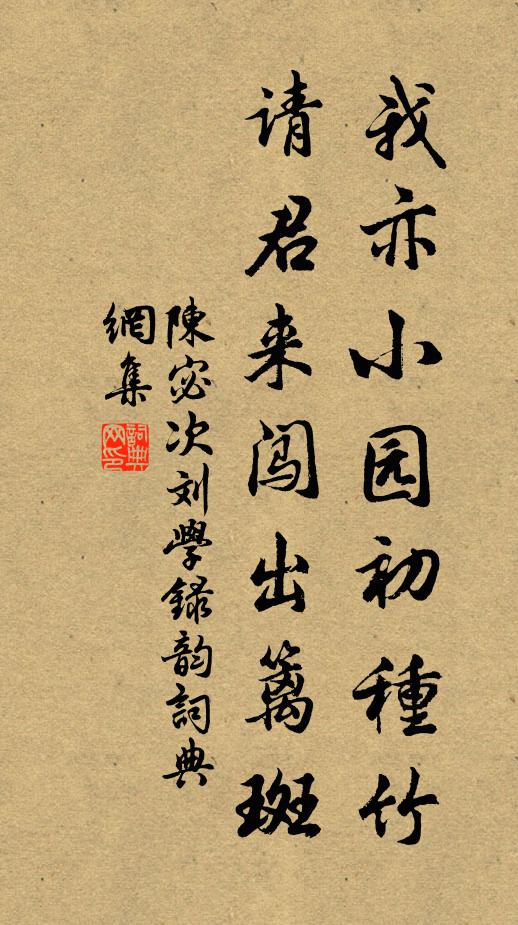 我亦小园初種竹
请君来闯出篱斑
陳宓次刘学録韵詞典
網集
詞典网印